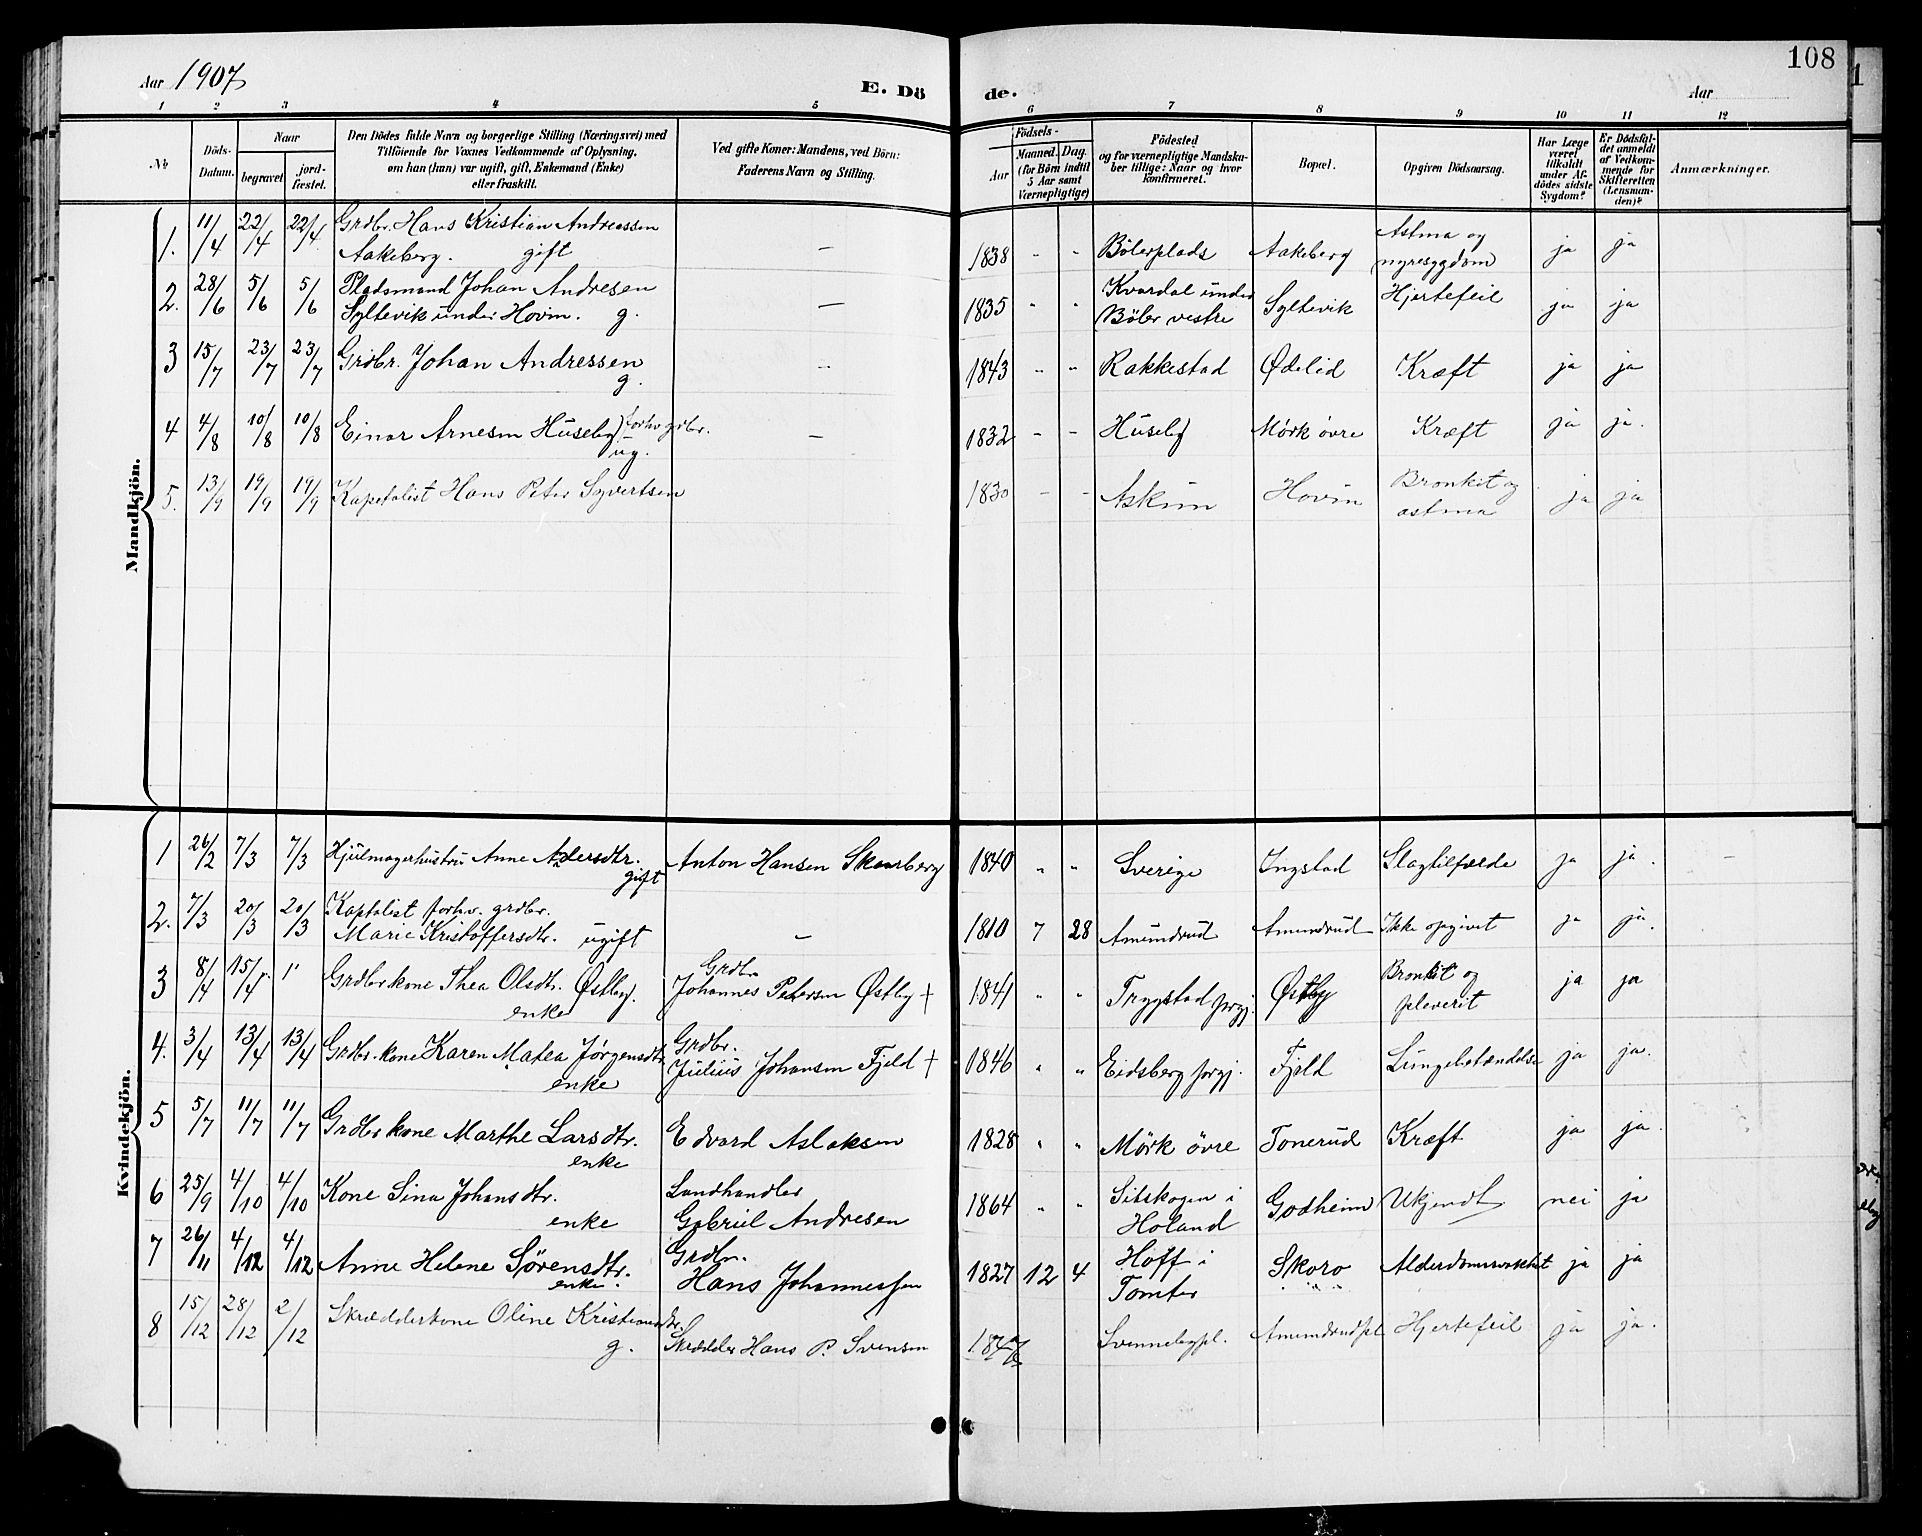 Aar 1907 E. Dö de. Aar 108
1 2 3 4 5 6 7 8 9 10 11 12
No. Döds-Datum. Naar begravet jordfæstet. Den Dödes fulde Navn og borgerlige Stilling (Næringsvei) med Tilföiende for Voxnes Vedkommende af Oplysning, om han (hun) var ugift, gift, Enkemand (Enke) eller fraskilt. Ved gifte Koner: Mandens, ved Börn: Faderens Navn og Stilling. Födsels- Aar Maaned. Dag. (for Börn indtil 5 Aar samt Værnepligtige) Födested og for værnepligtige Mandskaber tillige: Naar og hvor konfirmeret. Bopæl. Opgiven Dödsaarsag. Har Læge været tilkaldt under Afdödes sidste Sygdom? Er Dödsfaldet anmeldt af Vedkommende for Skifteretten (Lensmanden)? Anmærkninger.
Mandkjön.
1. 11/4 22/4 22/4 Grdbr. Hans Kristian Andreassen Aakeberg. gift — 1838 " " Bölerplads Aakeberg Astma og nyresygdom ja ja
2. 28/6 5/6 5/6 Pladsmand Johan Andresen Syltevik under Hovin. g. — 1835 " " Kvardal under Böler vestre Syltevik Hjertefeil ja ja
3 15/7 23/7 23/7 Grdbr. Johan Andressen g. — 1843 " " Rakkestad Ødelid Kræft ja ja
4 4/8 10/8 10/8 Einar Arnesen Huseby forhv grdbr. ug. — 1832 - - Huseby Mörk övre Kræft ja ja.
5. 13/9 19/9 19/9 Kapetalist Hans Peter Syvertsen 1830 - - Askim Hovin Bronkit og astma ja ja
Kvindekjön.
1 26/2 7/3 7/3 Hjulmagerhustru Anne Andersdtr. gift Anton Hansen Skarsberg 1840 " " Sverige Ingstad Slagtilfælde ja ja. -
2. 7/3 20/3 20/3 Kaptalist forhv. grdbr. Marie Kristoffersdtr. ugift — 1810 7 28 Amundrud Amundrud Ikke opgivet ja ja.
3 8/4 15/4 " Grdbrkone Thea Olsdtr. Østby. enke Grdbr. Johannes Petersen Østby † 1841 " " Trygstad prgj. Østby Bronkit og pleverit ja ja
4. 3/4 13/4 13/4 Grdbr.kone Karen Matea Jørgensdtr. enke Grdbr. Julius Johansen Fjeld † 1846 " " Eidsberg prgj. Fjeld Lungebetændelse ja ja.
5 5/7 11/7 11/7 Grdbrkone Marthe Larsdtr. enke Edvard Aslaksen 1828 " " Mörk övre Tonerud Kræft ja ja.
6 25/9 4/10 4/10 Kone Sina Johansdtr. enke Landhandler Gabriel Andresen 1864 " " Sitskogen i Holand Godheim Ukjendt nei ja
7 26/11 4/12 4/12 Anne Helene Sørensdtr. enke. Grdbr. Hans Johannessen 1827 12 4 Hoff i Tomter Skoro Alderdomssvakhet ja ja
8 15/12 28/12 2/12 Skrædderkone Oline Kristiansdtr. g. Skrædder Hans P. Svensen Svennebypl. Amundrudpl Hjertefeil ja ja.